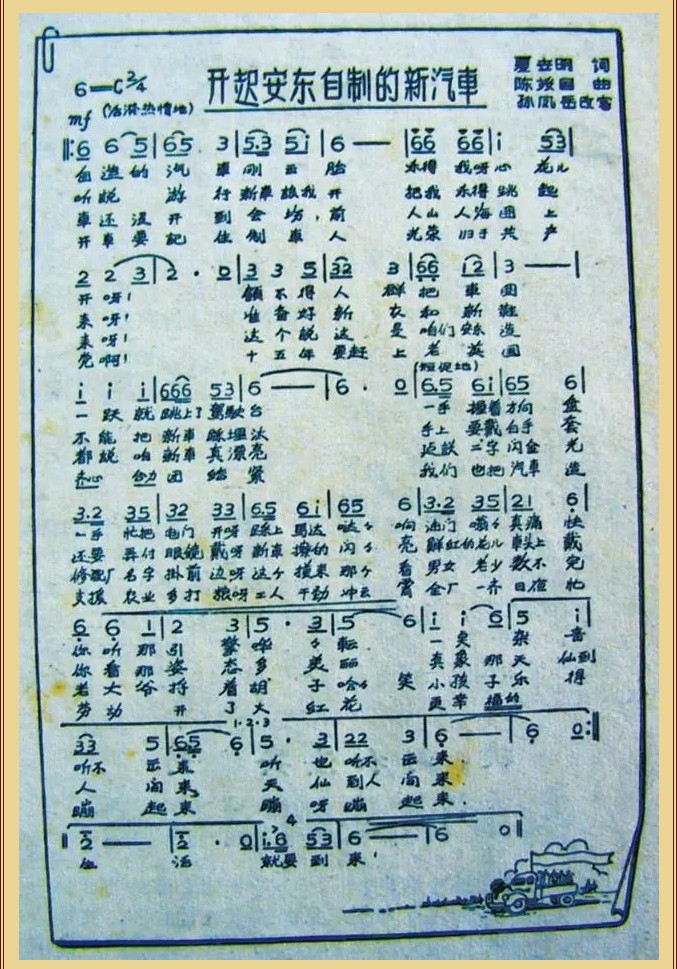 开起安东自制的新汽車
夏去明 词
陈 国 曲
孙凤岳改写
6=C 2/4
mf (活泼热情地)
‖: 6 6 5 | 6 5 3 | 5.3 5 i | 6 — | 6 6 6 6 | i 5 3 |
自造的汽車刚云胎 乐得我呀心花儿
听说游行新車被我开 把我乐得跳起
車还没开到会场,前 人山人海围上
开車要記住制車人 光荣归于共产
2 2 3 | 2 . 0 | 3 3 5 | 3 2 3 | 6 6 i 2 | 3 — |
开呀! 領不得人群把車围
来呀! 准备好新衣和新鞋
来呀! 这个説这是咱们安东造
党啊! 十五年要赶上老英国
(短促地)
i i i | 6 6 6 5 3 | 6 — | 6 . 0 | 6.5 6 i | 6 5 6 |
一跃就跳上了駕駛台 一手握着方向盘
不能把新車踩埋汰 手上要戴白手套
都説咱新車真漂亮 跃二字闪金光
齐心合力团结紧 我们也把汽車造
3.2 3 5 | 3 2 3 3 | 6.5 6 i | 6 5 6 | 3.2 3 5 | 2 1 6 |
一手忙把电门开呀踩上馬达哒々响油门嗡々真痛快
还要弄付眼镜戴呀新車擦的闪々亮鮮红的花儿車头上戴
修配厂名字掛前边呀这个摸来那个看男女老少数不完
支援农业多打粮呀工人干劲冲云霄全厂一齐日夜忙
6 6 1 | 2 3 | 5 . 3 | 5 6 | i i 6 | 5 i |
你听那引擎哗々转
你看那姿态多美丽真象那天仙到
老大爷捋着胡子哈々笑小孩子得
劳动开了大红花更幸福的
1.2.3
3 3 5 | 6 5 6 | 5 . 3 | 2 2 3 | 6 — | 6 0 :‖
听不云来听也听不云来.
人间来天仙到人间来.
蹦起来蹦呀蹦起来.
4
2 — | 2 . 0 | i.6 5 3 | 6 — | 6 0 ‖
生活就要到来!